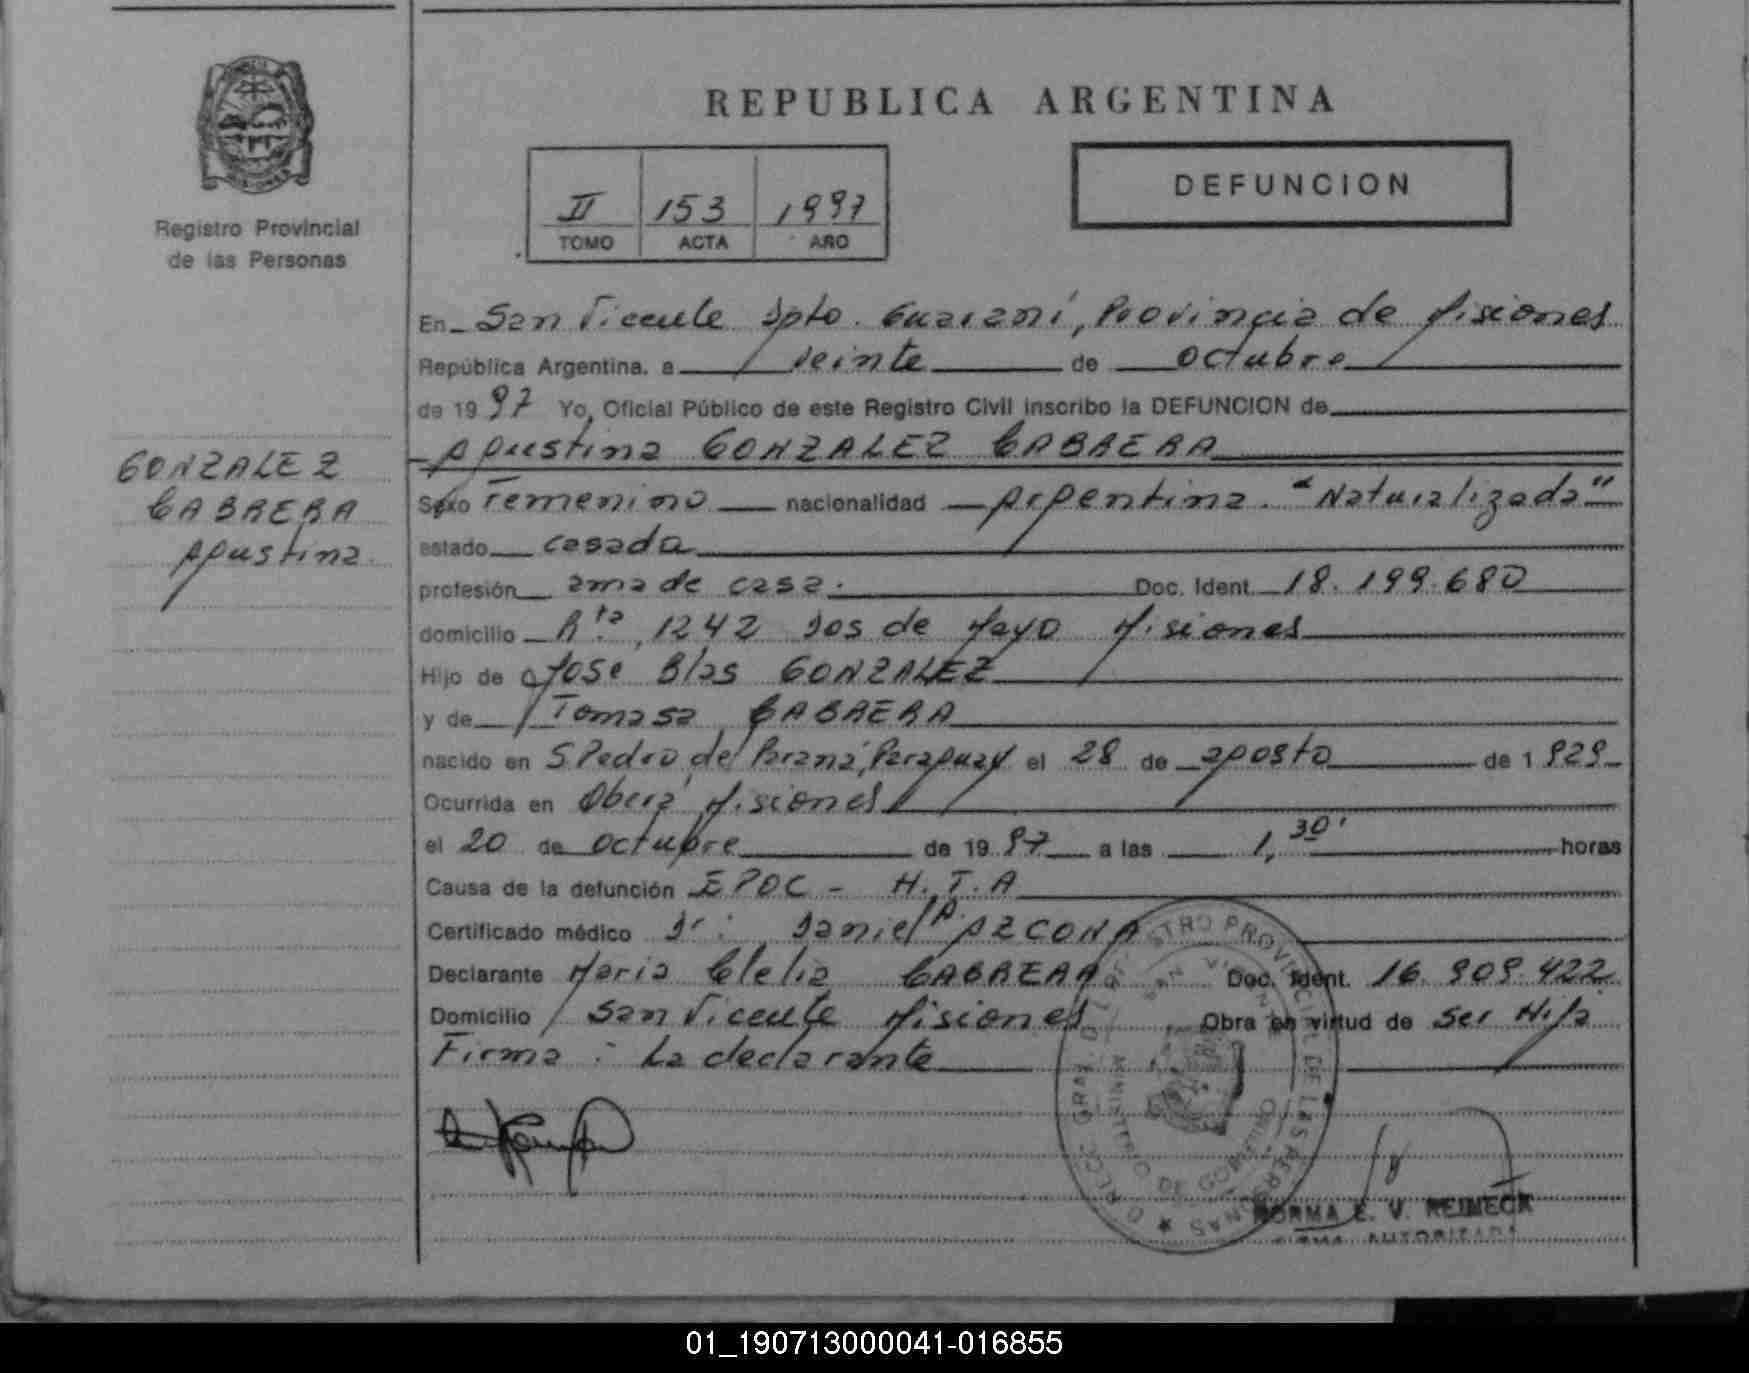 REPUBLICA ARGENTINA
DEFUNCION
II 153 1997
TOMO ACTA AÑO
Registro Provincial
de las Personas
GONZALEZ
CABRERA
Agustina
En San Vicente Dpto. Guaraní, Provincia de Misiones
República Argentina, a veinte de octubre
de 1997 Yo, Oficial Público de este Registro Civil inscribo la DEFUNCION de
Agustina GONZALEZ CABRERA
Sexo Femenino nacionalidad Argentina. "Naturalizada"
estado casada
profesión ama de casa. Doc. Ident. 18.199.680
domicilio Rta. 1242 Dos de Mayo Misiones
Hijo de Jose Blas GONZALEZ
y de Tomasa CABRERA
nacido en S. Pedro del Paraná, Paraguay el 28 de agosto de 1929
Ocurrida en Oberá Misiones
el 20 de octubre de 1997 a las 1,30' horas
Causa de la defunción EPOC - H.T.A
Certificado médico Dr: Daniel A. AZCONA
Declarante Maria Clelia CABRERA Doc. Ident. 16.909.422
Domicilio San Vicente Misiones Obra en virtud de ser Hija
Firma: La declarante
REGISTRO PROVINCIAL DE LAS PERSONAS
SAN VICENTE
MINISTERIO DE GOBIERNO
NORMA E. V. REINECK
FIRMA AUTORIZADA
01_190713000041-016855